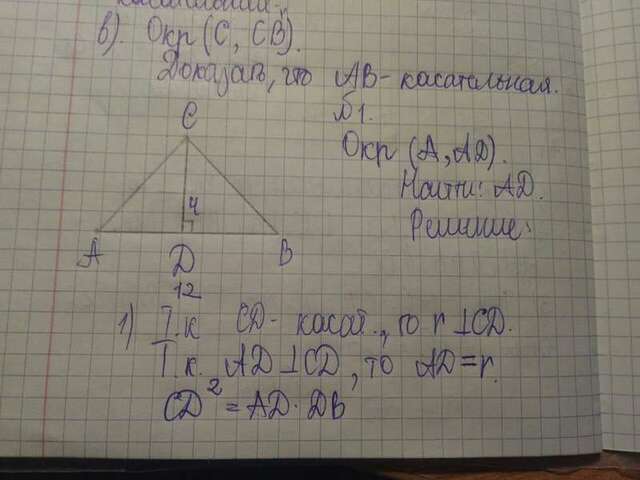 касательная.
в). Окр (С, СВ).
Доказать, что АВ - касательная.
№1.
С
Окр (А, АD).
Найти: АD.
Решение:
4
А
D
В
12
1) Т.к CD - касат., то r ⊥ CD.
Т.к. AD ⊥ CD, то AD = r.
CD² = AD · DB